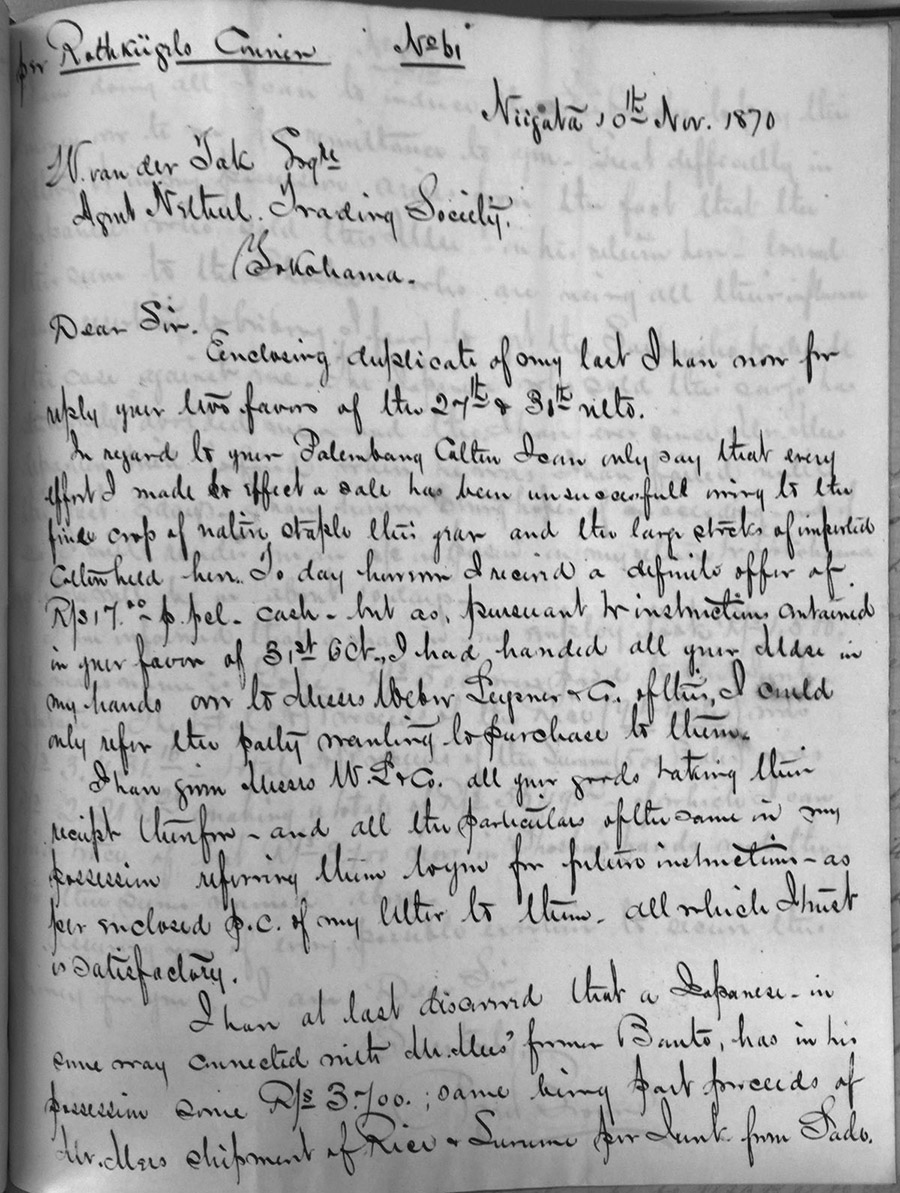 per Rothkügels Courier No 61
Niigata 10th Nov. 1870
W. van der Tak Esqre
Agent Netherl. Trading Society.
Yokohama.
Dear Sir.
Enclosing duplicate of my last I have now for
reply your two favors of the 27th & 31th ulto.
In regard to your Palembang Cotton I can only say that every
effort I made to effect a sale has been unsuccesfull owing to the
fine crop of native staple this year and the large stocks of imported
Cotton held here. To day however I received a definite offer of
R/s 17.00 p. pcl. cash - but as, pursuant to instructions contained
in your favor of 31st Oct., I had handed all your Mdse in
my hands over to Messrs Weber & Co. of this, I could
only refer the party wanting to purchase to them.
I have given Messrs W. L & Co. all your goods taking their
receipt therefor - and all the particulars of the same in my
possession referring them to you for future instructions - as
per enclosed p.c. of my letter to them - all which I trust
is satisfactory.
I have at last discovered that a Japanese - in
some way connected with Mr. Mees' former Banto, has in his
possession some R/s 3.700. ; same being part proceeds of
Mr. Mees shipment of Rice & Surume per Junk from Sado.